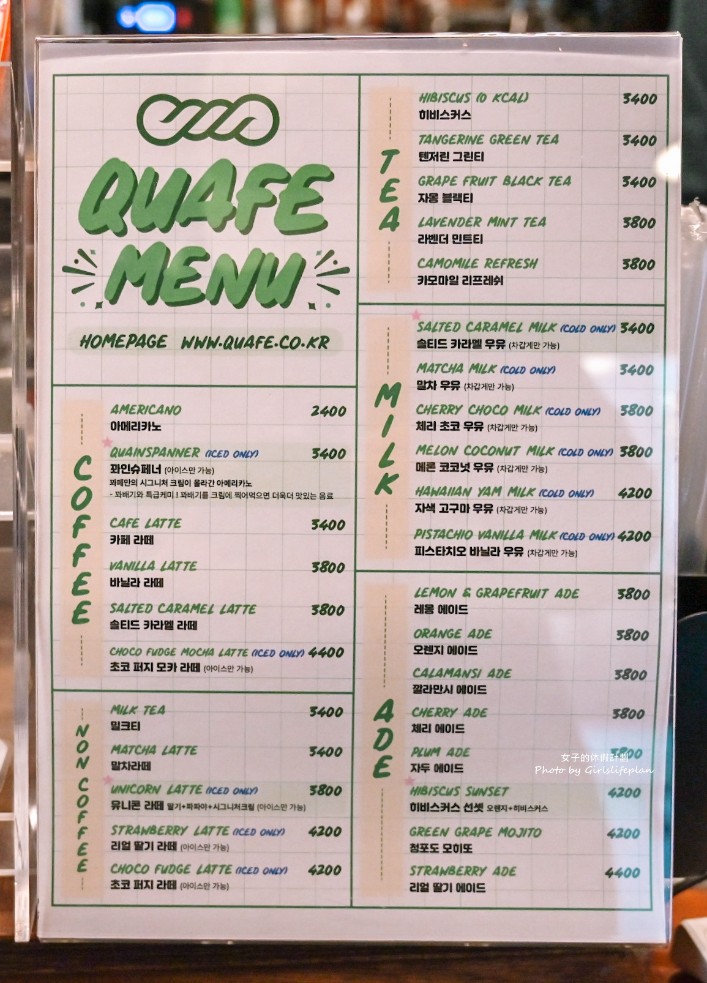 QUAFE
MENU
HOMEPAGE WWW.QUAFE.CO.KR
COFFEE
AMERICANO 2400
아메리카노
QUAINSPANNER (ICED ONLY) 3400
꽈인슈페너 (아이스만 가능)
꽈페만의 시그니처 크림이 올라간 아메리카노
- 꽈배기와 특급케미! 꽈배기를 크림에 찍어먹으면 더욱더 맛있는 음료
CAFE LATTE 3400
카페 라떼
VANILLA LATTE 3800
바닐라 라떼
SALTED CARAMEL LATTE 3800
솔티드 카라멜 라떼
CHOCO FUDGE MOCHA LATTE (ICED ONLY) 4400
초코 퍼지 모카 라떼 (아이스만 가능)
NON COFFEE
MILK TEA 3400
밀크티
MATCHA LATTE 3400
말차라떼
UNICORN LATTE (ICED ONLY) 3800
유니콘 라떼 딸기+파파야+시그니처크림 (아이스만 가능)
STRAWBERRY LATTE (ICED ONLY) 4200
리얼 딸기 라떼 (아이스만 가능)
CHOCO FUDGE LATTE (ICED ONLY) 4200
초코 퍼지 라떼 (아이스만 가능)
TEA
HIBISCUS (0 KCAL) 3400
히비스커스
TANGERINE GREEN TEA 3400
텐저린 그린티
GRAPE FRUIT BLACK TEA 3400
자몽 블랙티
LAVENDER MINT TEA 3800
라벤더 민트티
CAMOMILE REFRESH 3800
카모마일 리프레쉬
MILK
SALTED CARAMEL MILK (COLD ONLY) 3400
솔티드 카라멜 우유 (차갑게만 가능)
MATCHA MILK (COLD ONLY) 3400
말차 우유 (차갑게만 가능)
CHERRY CHOCO MILK (COLD ONLY) 3800
체리 초코 우유 (차갑게만 가능)
MELON COCONUT MILK (COLD ONLY) 3800
메론 코코넛 우유 (차갑게만 가능)
HAWAIIAN YAM MILK (COLD ONLY) 4200
자색 고구마 우유 (차갑게만 가능)
PISTACHIO VANILLA MILK (COLD ONLY) 4200
피스타치오 바닐라 우유 (차갑게만 가능)
ADE
LEMON & GRAPEFRUIT ADE 3800
레몽 에이드
ORANGE ADE 3800
오렌지 에이드
CALAMANSI ADE 3800
깔라만시 에이드
CHERRY ADE 3800
체리 에이드
PLUM ADE 3800
자두 에이드
HIBISCUS SUNSET 4200
히비스커스 선셋 오렌지+히비스커스
GREEN GRAPE MOJITO 4200
청포도 모히또
STRAWBERRY ADE 4400
리얼 딸기 에이드
女子的休假計劃
Photo by Girlslifeplan